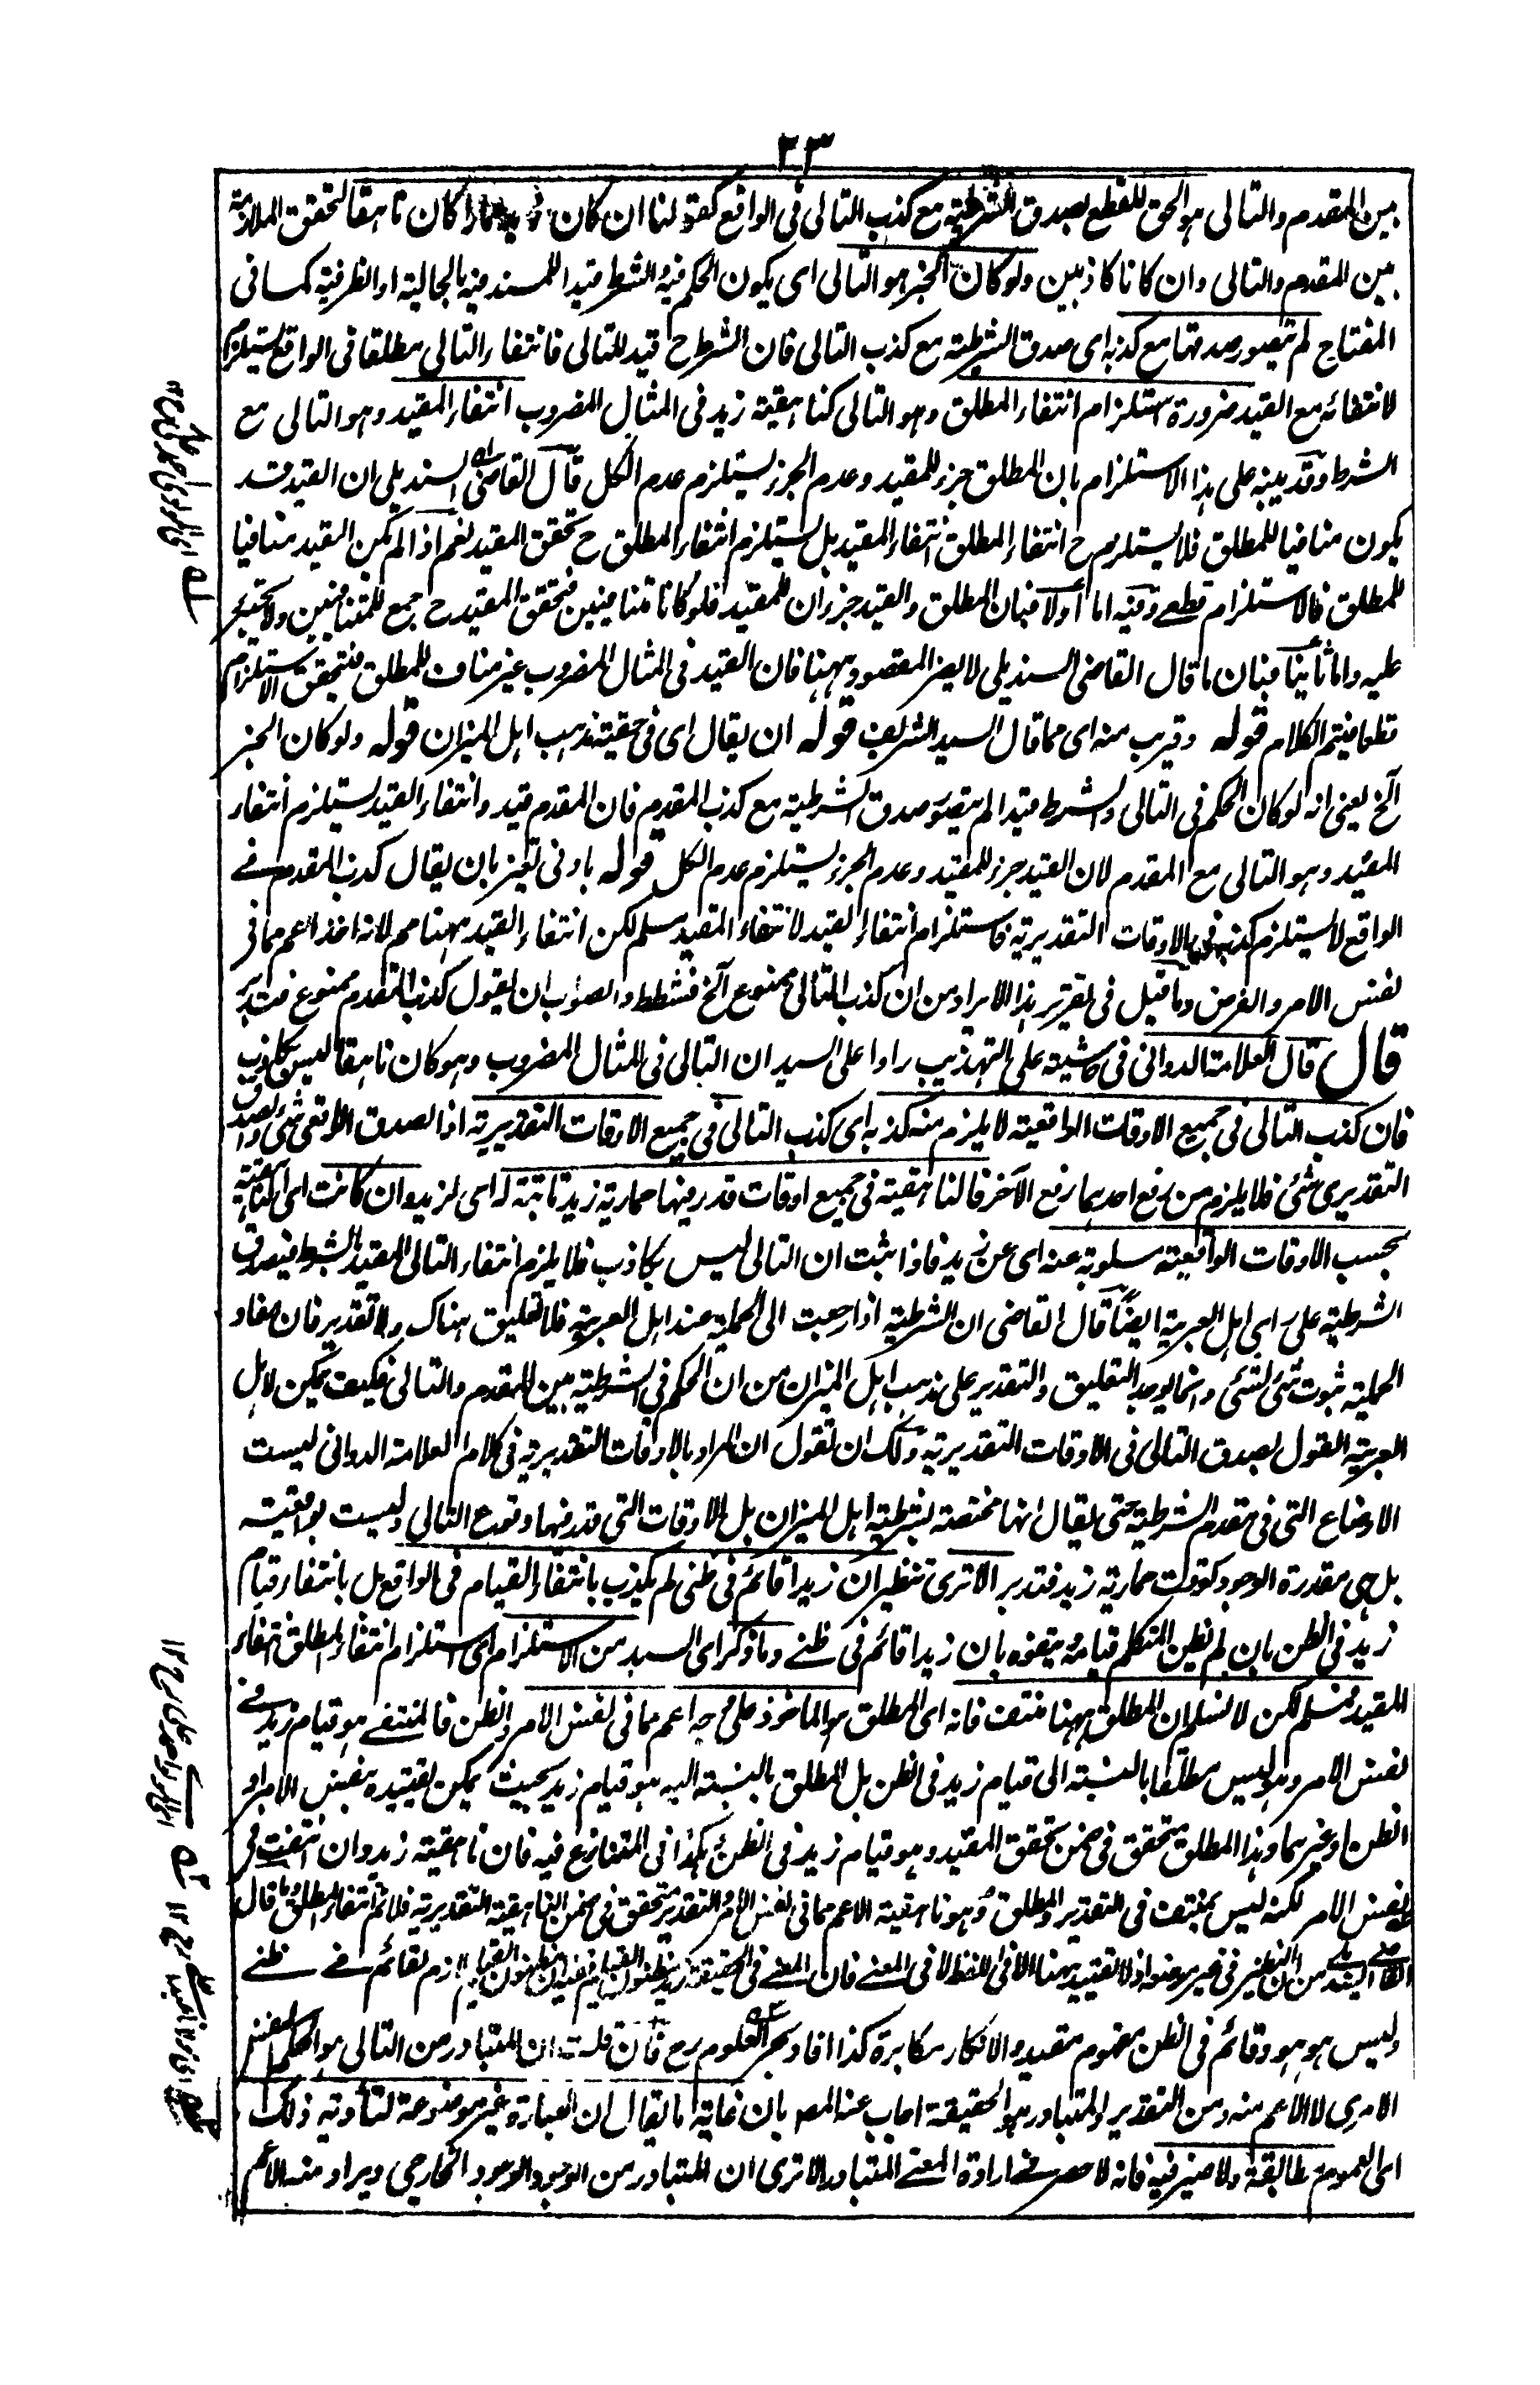 ٣٣
بين المقدم والتالى هو الحق للقطع بصدق الشرطية مع كذب التالى فى الواقع كقولنا ان كان زيد حمارا كان ناهقا لتحقق الملازمة
بين المقدم والتالى وان كانا كاذبين ولو كان الخبر هو التالى اى يكون الحكم فيه والشرط قيدا للمسند فيه بالحالية او الظرفية كما فى
المفتاح لم يتصور صدقها مع كذبه اى صدق الشرطية مع كذب التالى فان الشرط ح قيد للتالى فانتفاء التالى مطلقا فى الواقع مستلزم
لانتفائه مع القيد ضرورة استلزام انتفاء المطلق وهو التالى كناهقية زيد فى المثال المضروب انتفاء المقيد وهو التالى مع
الشرط وقد يبنه على هذا الاستلزام بان المطلق جزء للمقيد وعدم الجزء يستلزم عدم الكل قال القاضى السنديلى ان القيد قد
يكون منافيا للمطلق فلا يستلزم ح انتفاء المطلق انتفاء المقيد بل يستلزم انتفاء المطلق ح تحقق المقيد نعم اذا لم يكن القيد منافيا
للمطلق فالاستلزام قطعى وفيه اما اولا فبان المطلق والقيد جزءان للمقيد فلو كانا متنافيين فتحقق المقيد ح جمع للمتنافيين ولا يجترء
عليه واما ثانيا فبان ما قال القاضى السنديلى لا يضر المقصود ههنا فان القيد فى المثال المضروب غير مناف للمطلق فيتحقق الاستلزام
قطعا فيتم الكلام قوله وقريب منه اى مما قال السيد الشريف قوله ان يقال اى فى حقية مذهب اهل الميزان قوله ولو كان الخبر
آلخ يعنى انه لو كان الحكم فى التالى والشرط قيدا لم يتصور صدق الشرطية مع كذب المقدم فان المقدم قيد وانتفاء القيد يستلزم انتفاء
المقيد وهو التالى مع المقدم لان القيد جزء للمقيد وعدم الجزء يستلزم عدم الكل قوله بادنى تغير بان يقال كذب المقدم فى
الواقع لا يستلزم كذبه فى الاوقات التقديرية فاستلزام انتفاء القيد لانتفاء المقيد مسلم لكن انتفاء القيد ههنا مم لانه اخذ اعم مما فى
نفس الامر والفرض وما قيل فى تقرير هذا الايراد من ان كذب التالى ممنوع آلخ فشطط والصواب ان يقول كذب المقدم ممنوع فتدبر
قال قال العلامة الدوانى فى حاشيته على التهذيب رادا على السيد ان التالى فى المثال المضروب وهو كان ناهقا ليس بكاذب
فان كذب التالى فى جميع الاوقات الواقعية لا يلزم منه كذبه اى كذب التالى فى جميع الاوقات التقديرية اذ الصدق الواقعى شئ والصدق
التقديرى شئ فلا يلزم من رفع احدهما رفع الآخر فالناهقية فى جميع اوقات قدر فيها حمارية زيد ثابتة له اى لزيد وان كانت اى الناهقية
بحسب الاوقات الواقعية مسلوبة عنه اى عن زيد فاذا ثبت ان التالى ليس بكاذب فلا يلزم انتفاء التالى المقيد بالشرط فيصدق
الشرطية على راى اهل العربية ايضا قال القاضى ان الشرطية اذا رجعت الى الحملية عند اهل العربية فلا تعليق هناك ولا تقدير فان مفاد
الحملية ثبوت شئ لشئ وانما يوجد التعليق والتقدير على مذهب اهل الميزان من ان الحكم فى الشرطية بين المقدم والتالى فكيف يمكن لاهل
العربية القول بصدق التالى فى الاوقات التقديرية ولك ان تقول ان المراد بالاوقات التقديرية فى كلام العلامة الدوانى ليست
الاوضاع التى فى مقدم الشرطية حتى يقال انها مختصة بشرطية اهل الميزان بل الاوقات التى قدر فيها وقوع التالى وليست بواقعية
بل هى مقدرة الوجود كوقت حمارية زيد فتدبر الا ترى تنظير ان زيدا قائم فى ظنى لم يكذب بانتفاء القيام فى الواقع بل بانتفاء قيام
زيد فى الظن بان لم يظن المتكلم قيامه ويتفوه بان زيدا قائم فى ظنى وما ذكر اى السيد من الاستلزام اى استلزام انتفاء المطلق انتفاء
المقيد مسلم لكن لا نسلم ان المطلق ههنا منتف فانه اى المطلق هو الماخوذ على وجه اعم مما فى نفس الامر والظن فالمنتفى هو قيام زيد فى
نفس الامر وهو ليس مطلقا بالنسبة الى قيام زيد فى الظن بل المطلق بالنسبة اليه هو قيام زيد بحيث يمكن تقييده بنفس الامر او
الظن او غيرهما وهذا المطلق متحقق فى ضمن تحقق المقيد وهو قيام زيد فى الظن وهكذا فى المتنازع فيه فان ناهقية زيد وان انتفت فى
نفس الامر لكنه ليس بمنتف فى التقدير والمطلق وهو ناهقية الاعم مما فى نفس الامر والتقدير متحقق فى ضمن الناهقية التقديرية فلا يتم انتفاء المطلق وما قال
القاضى السنديلى من ان التنظير فى غير موضعه اذ لا تقييد ههنا الا فى اللفظ لا فى المعنى فان المعنى فى الحقيقة زيد مظنون القيام لقائم فى ظنى
وليس هو هو وقائم فى الظن مفهوم مقيد والانكار مكابرة كذا افاد بحر العلوم رح فان قلت ان المتبادر من التالى هو الحكم النفس
الامرى لا الاعم منه ومن التقدير والمتبادر هو الحقيقة اجاب عنه المص بان غاية ما يقال ان العبارة غير موضوعة لتأدية ذلك
اى العموم مطابقة ولا ضير فيه فانه لا حصر فى ارادة المعنى المتبادر الا ترى ان المتبادر من الوجود الوجود الخارجى ويراد منه الاعم